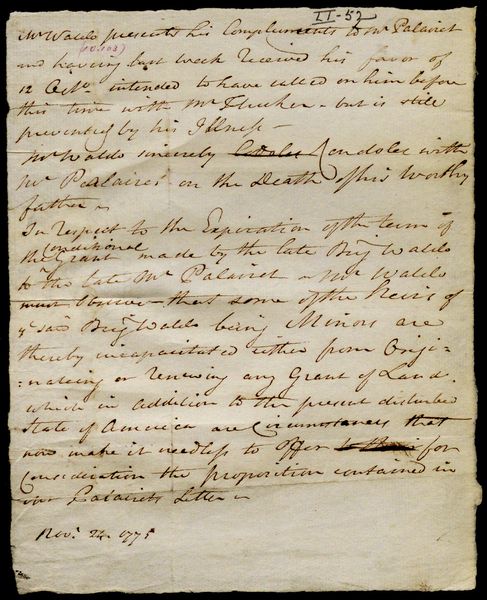 II-52
Mr Waldo presents his Compliments to Mr Palairet
(10.103)
and having last week received his favor of
12 Octr. intended to have called on him before
this time with Mr Flucker - but is still
prevented by his Illness -
Mr Waldo sincerely Condoles with
Mr Palairet on the Death of his Worthy
father -
In respect to the Expiration of the term of
Conditional
the Grant made by the late Brigr Waldo
to the late Mr Palairet - Mr Waldo
must observe - that some of the Heirs of
ye said Brigr Waldo being Minors are
thereby incapacitated either from Origi-
-nateing or renewing any Grant of Land.
which in addition to the present disturbed
State of America are Circumstances that
now make it needless to offer for
Consideration the proposition contained in
Mr Palairets Letter -
Novr. 24. 1775